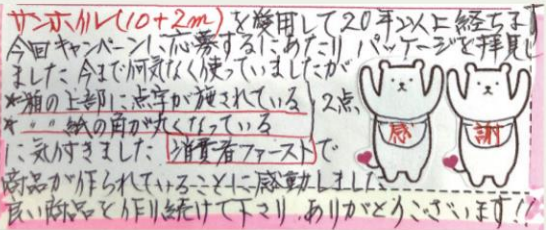 サンホイル(10+2m)を使用して20年以上経ちます
今回キャンペーンに応募するにあたり パッケージを拝見し
ました 今まで何気なく使っていましたが
*箱の上部に点字が施されている
*〃 〃 紙の角が丸くなっている
2点、
に気付きました 消費者ファーストで
商品が作られていることに感動しました
良い商品を作り続けて下さり、ありがとうございます!!
感 謝